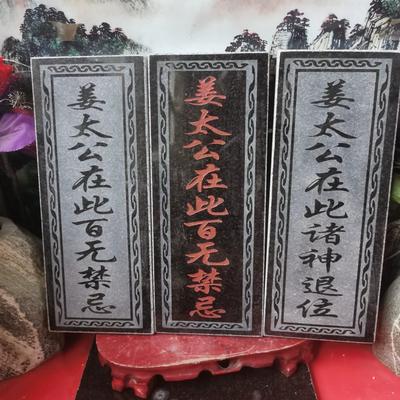 姜太公在此百无禁忌
姜太公在此百无禁忌
姜太公在此诸神退位